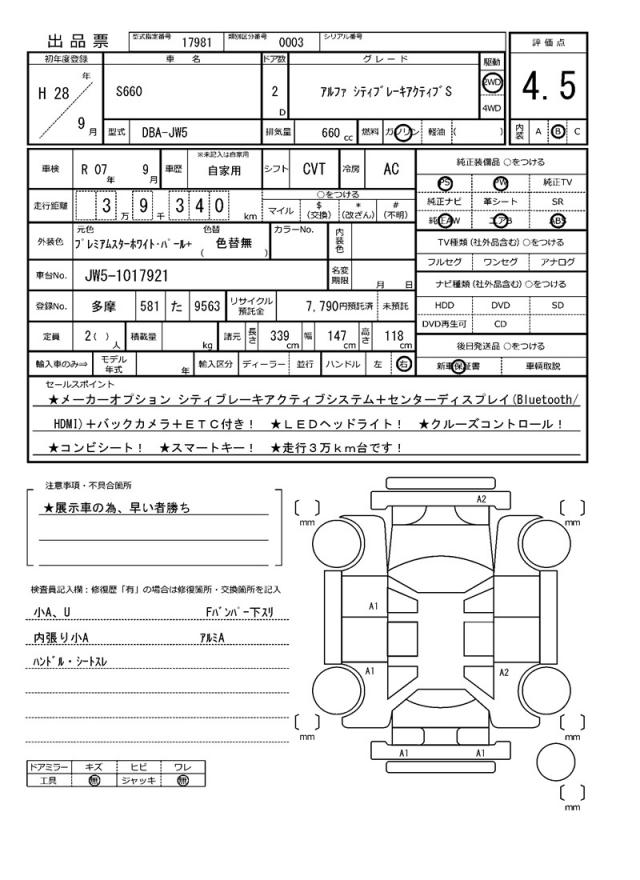 出品票 型式指定番号 17981 類別区分番号 0003 シリアル番号
評価点
4.5
内装 A B C
初年度登録 車名 ドア数 グレード 駆動
H 28 年 9 月 S660 2 D アルファ シティブレーキアクティブS 2WD 4WD
型式 DBA-JW5 排気量 660 cc 燃料 ガソリン 軽油 ( )
車検 R 07 年 9 月 車歴 ※未記入は自家用 自家用 シフト CVT 冷房 AC
走行距離 3 万 9 千 3 4 0 km ○をつける
マイル $ (交換) * (改ざん) # (不明)
外装色 元色 プレミアムスターホワイト・パール+ 色替 ( 色替無 ) カラーNo. 内装色
車台No. JW5-1017921 名変期限 月 日
登録No. 多摩 581 た 9563 リサイクル預託金 7,790円預託済 未預託
定員 2( ) 人 積載量 kg 諸元 長さ 339 cm 幅 147 cm 高さ 118 cm
輸入車のみ⇒ モデル年式 年 輸入区分 ディーラー 並行 ハンドル 左 右
純正装備品 ○をつける
PS PW 純正TV
純正ナビ 革シート SR
純正AW エアB ABS
TV種類 (社外品含む) ○をつける
フルセグ ワンセグ アナログ
ナビ種類 (社外品含む) ○をつける
HDD DVD SD
DVD再生可 CD
後日発送品 ○をつける
新車保証書 車輌取説
セールスポイント
★メーカーオプション シティブレーキアクティブシステム+センターディスプレイ(Bluetooth/
HDMI)+バックカメラ+ETC付き! ★LEDヘッドライト! ★クルーズコントロール!
★コンビシート! ★スマートキー! ★走行3万km台です!
注意事項・不具合箇所
★展示車の為、早い者勝ち
検査員記入欄:修復歴「有」の場合は修復箇所・交換箇所を記入
小A、U Fバンパー下スリ
内張り小A アルミA
ハンドル・シートスレ
ドアミラー キズ ヒビ ワレ
工具 無 ジャッキ 無
A2
[ ] mm [ ] mm
A1
A1 A2
[ ] mm [ ] mm
A1 A1
[ ] mm